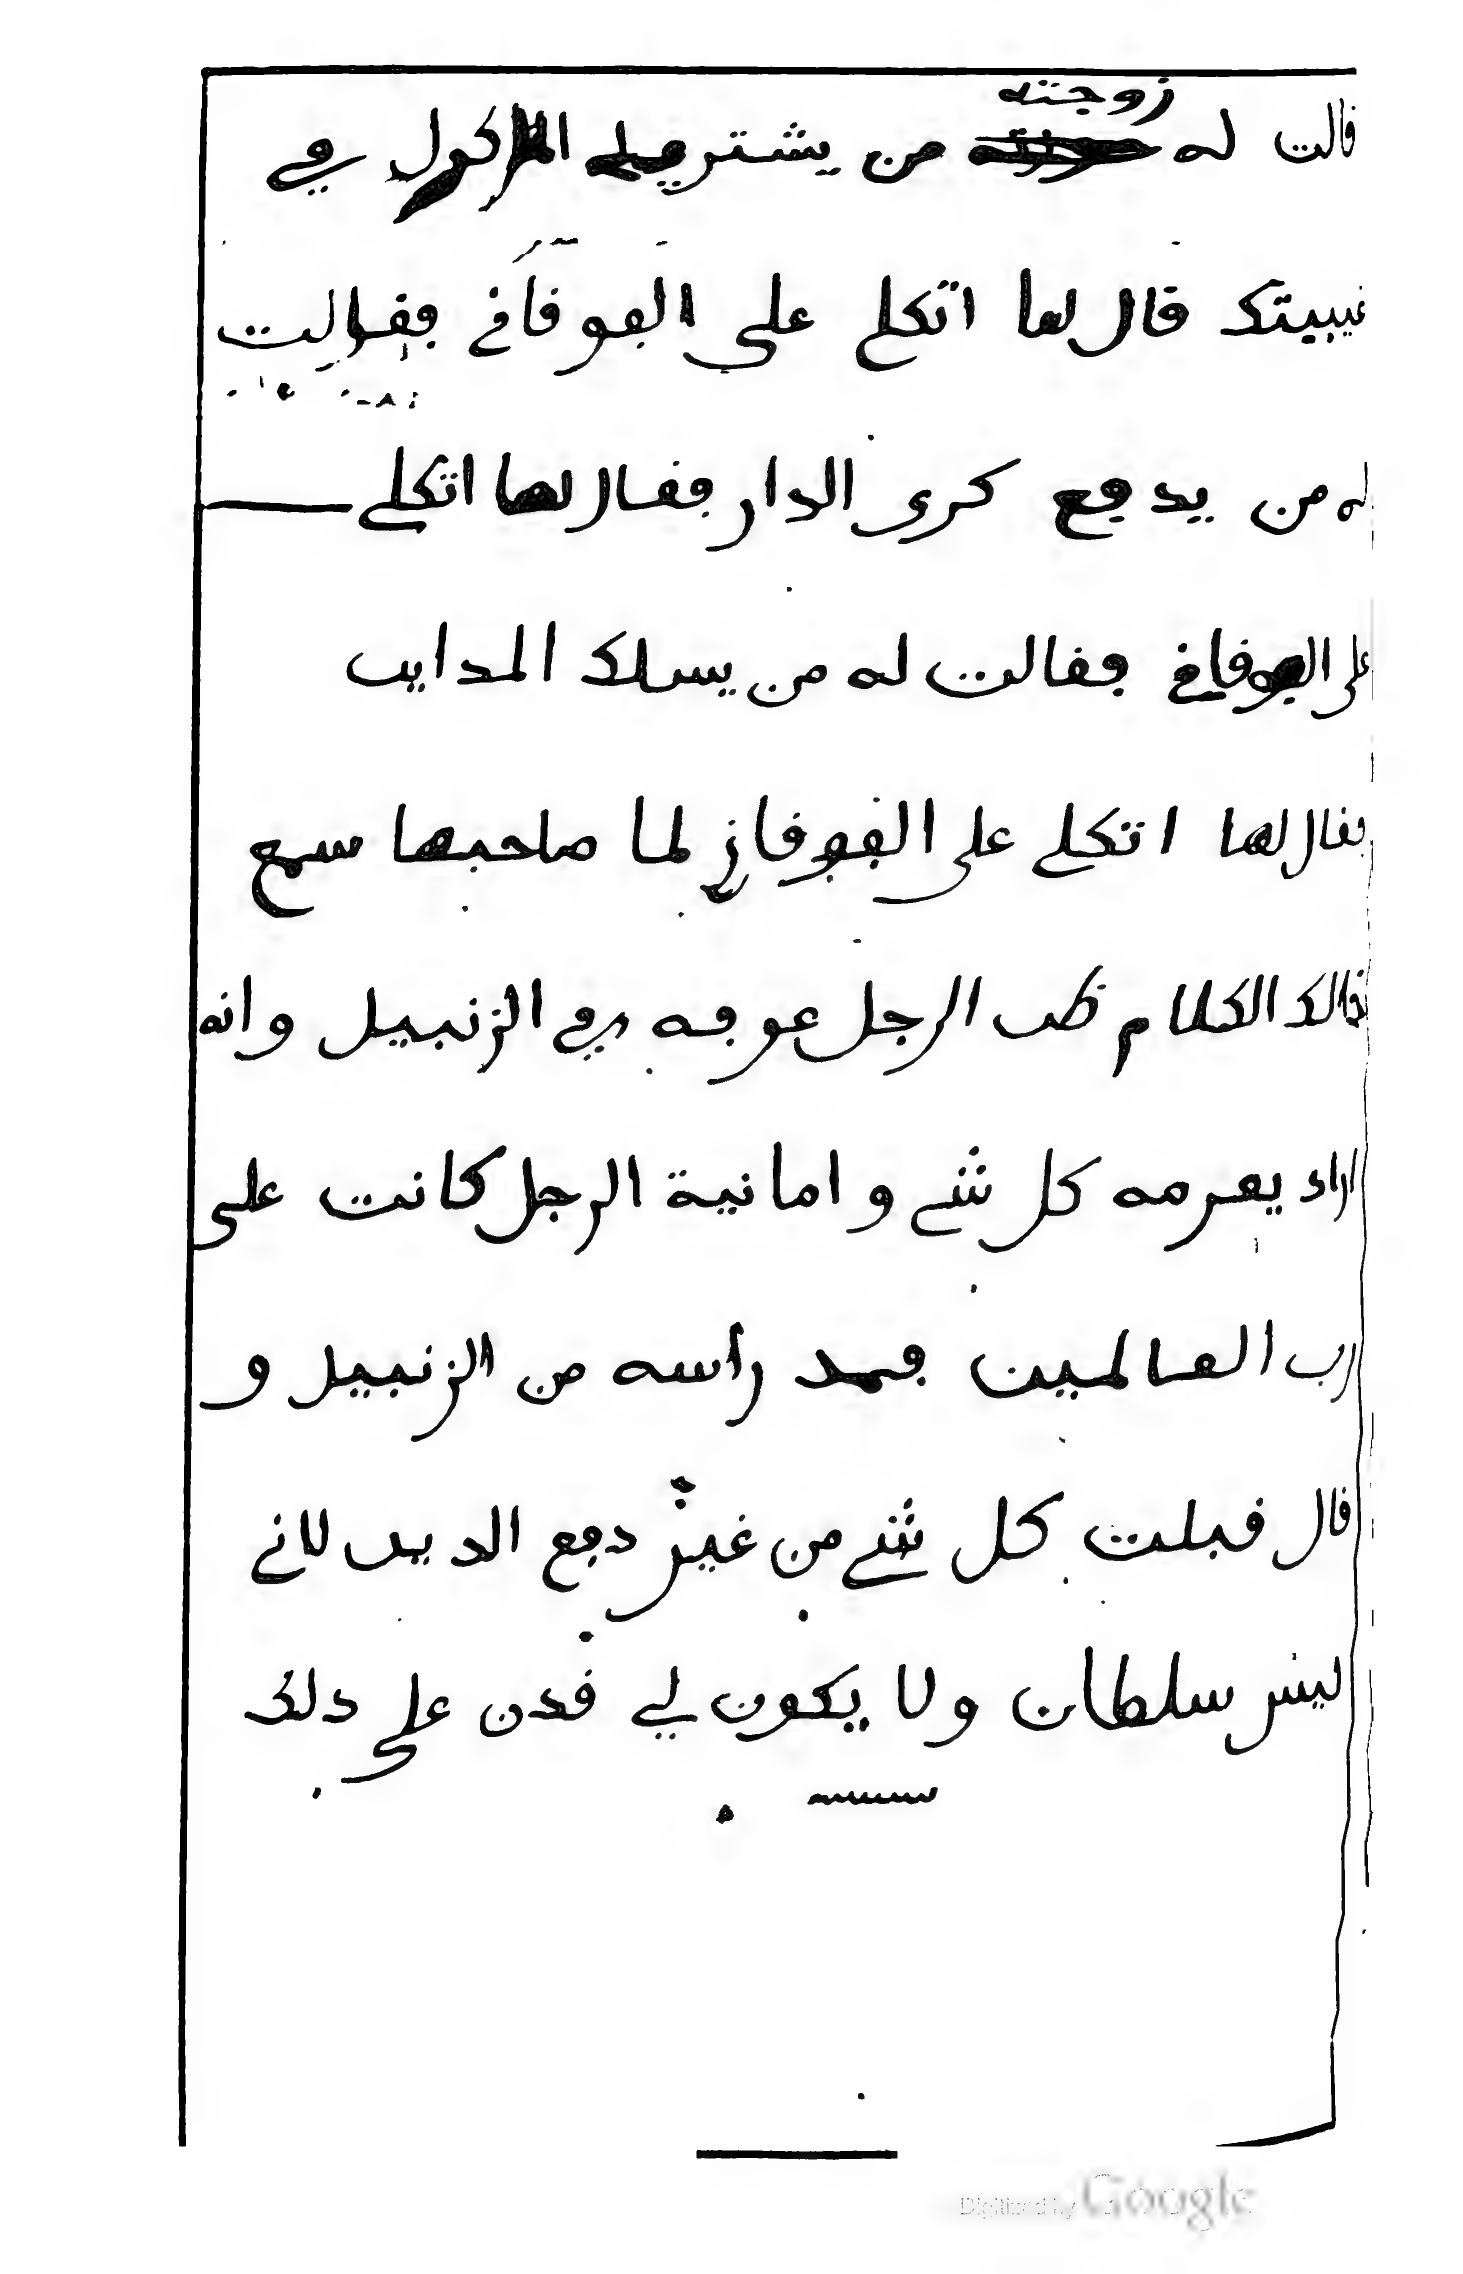 زوجته
قالت له من يشتري الماكول في
غيبيتك قال لها اتكلي على الفوقاني فقالت
له من يدفع كرى الدار فقال لها اتكلي
على الفوقاني فقالت له من يسلك المداين
فقال لها اتكلي على الفوقاني لما صاحبها سمع
ذالك الكلام ظن الرجل عوفه في الزنبيل وانه
اراد يغرمه كل شي وامانية الرجل كانت على
رب العالمين فمد راسه من الزنبيل و
قال قبلت كل شي من غير دفع الدين لاني
ليس سلطان ولا يكون لي قدن على دلك
Digitized by Google